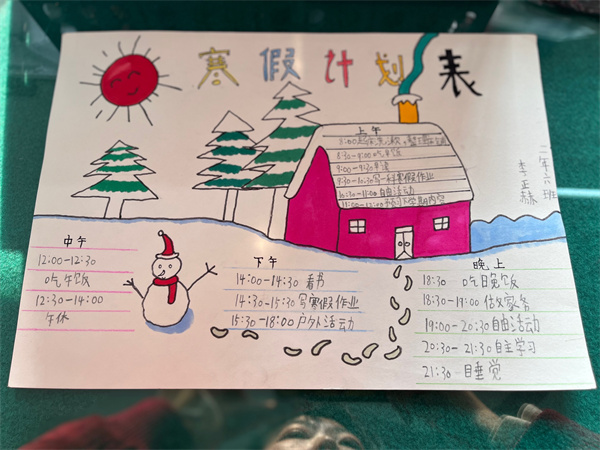 寒假计划表
二年六班
李孟赫
上午
8:00起床
8:30-9:00吃早饭
9:00-9:30早读
9:30-10:30写一科寒假作业
10:30-11:00自由活动
11:00-12:00预习下学期内容
中午
12:00-12:30
吃午饭
12:30-14:00
午休
下午
14:00-14:30 看书
14:30-15:30 写寒假作业
15:30-18:00户外活动
晚上
18:30 吃晚饭
18:30-19:00 做家务
19:00-20:30自由活动
20:30-21:30自主学习
21:30 睡觉